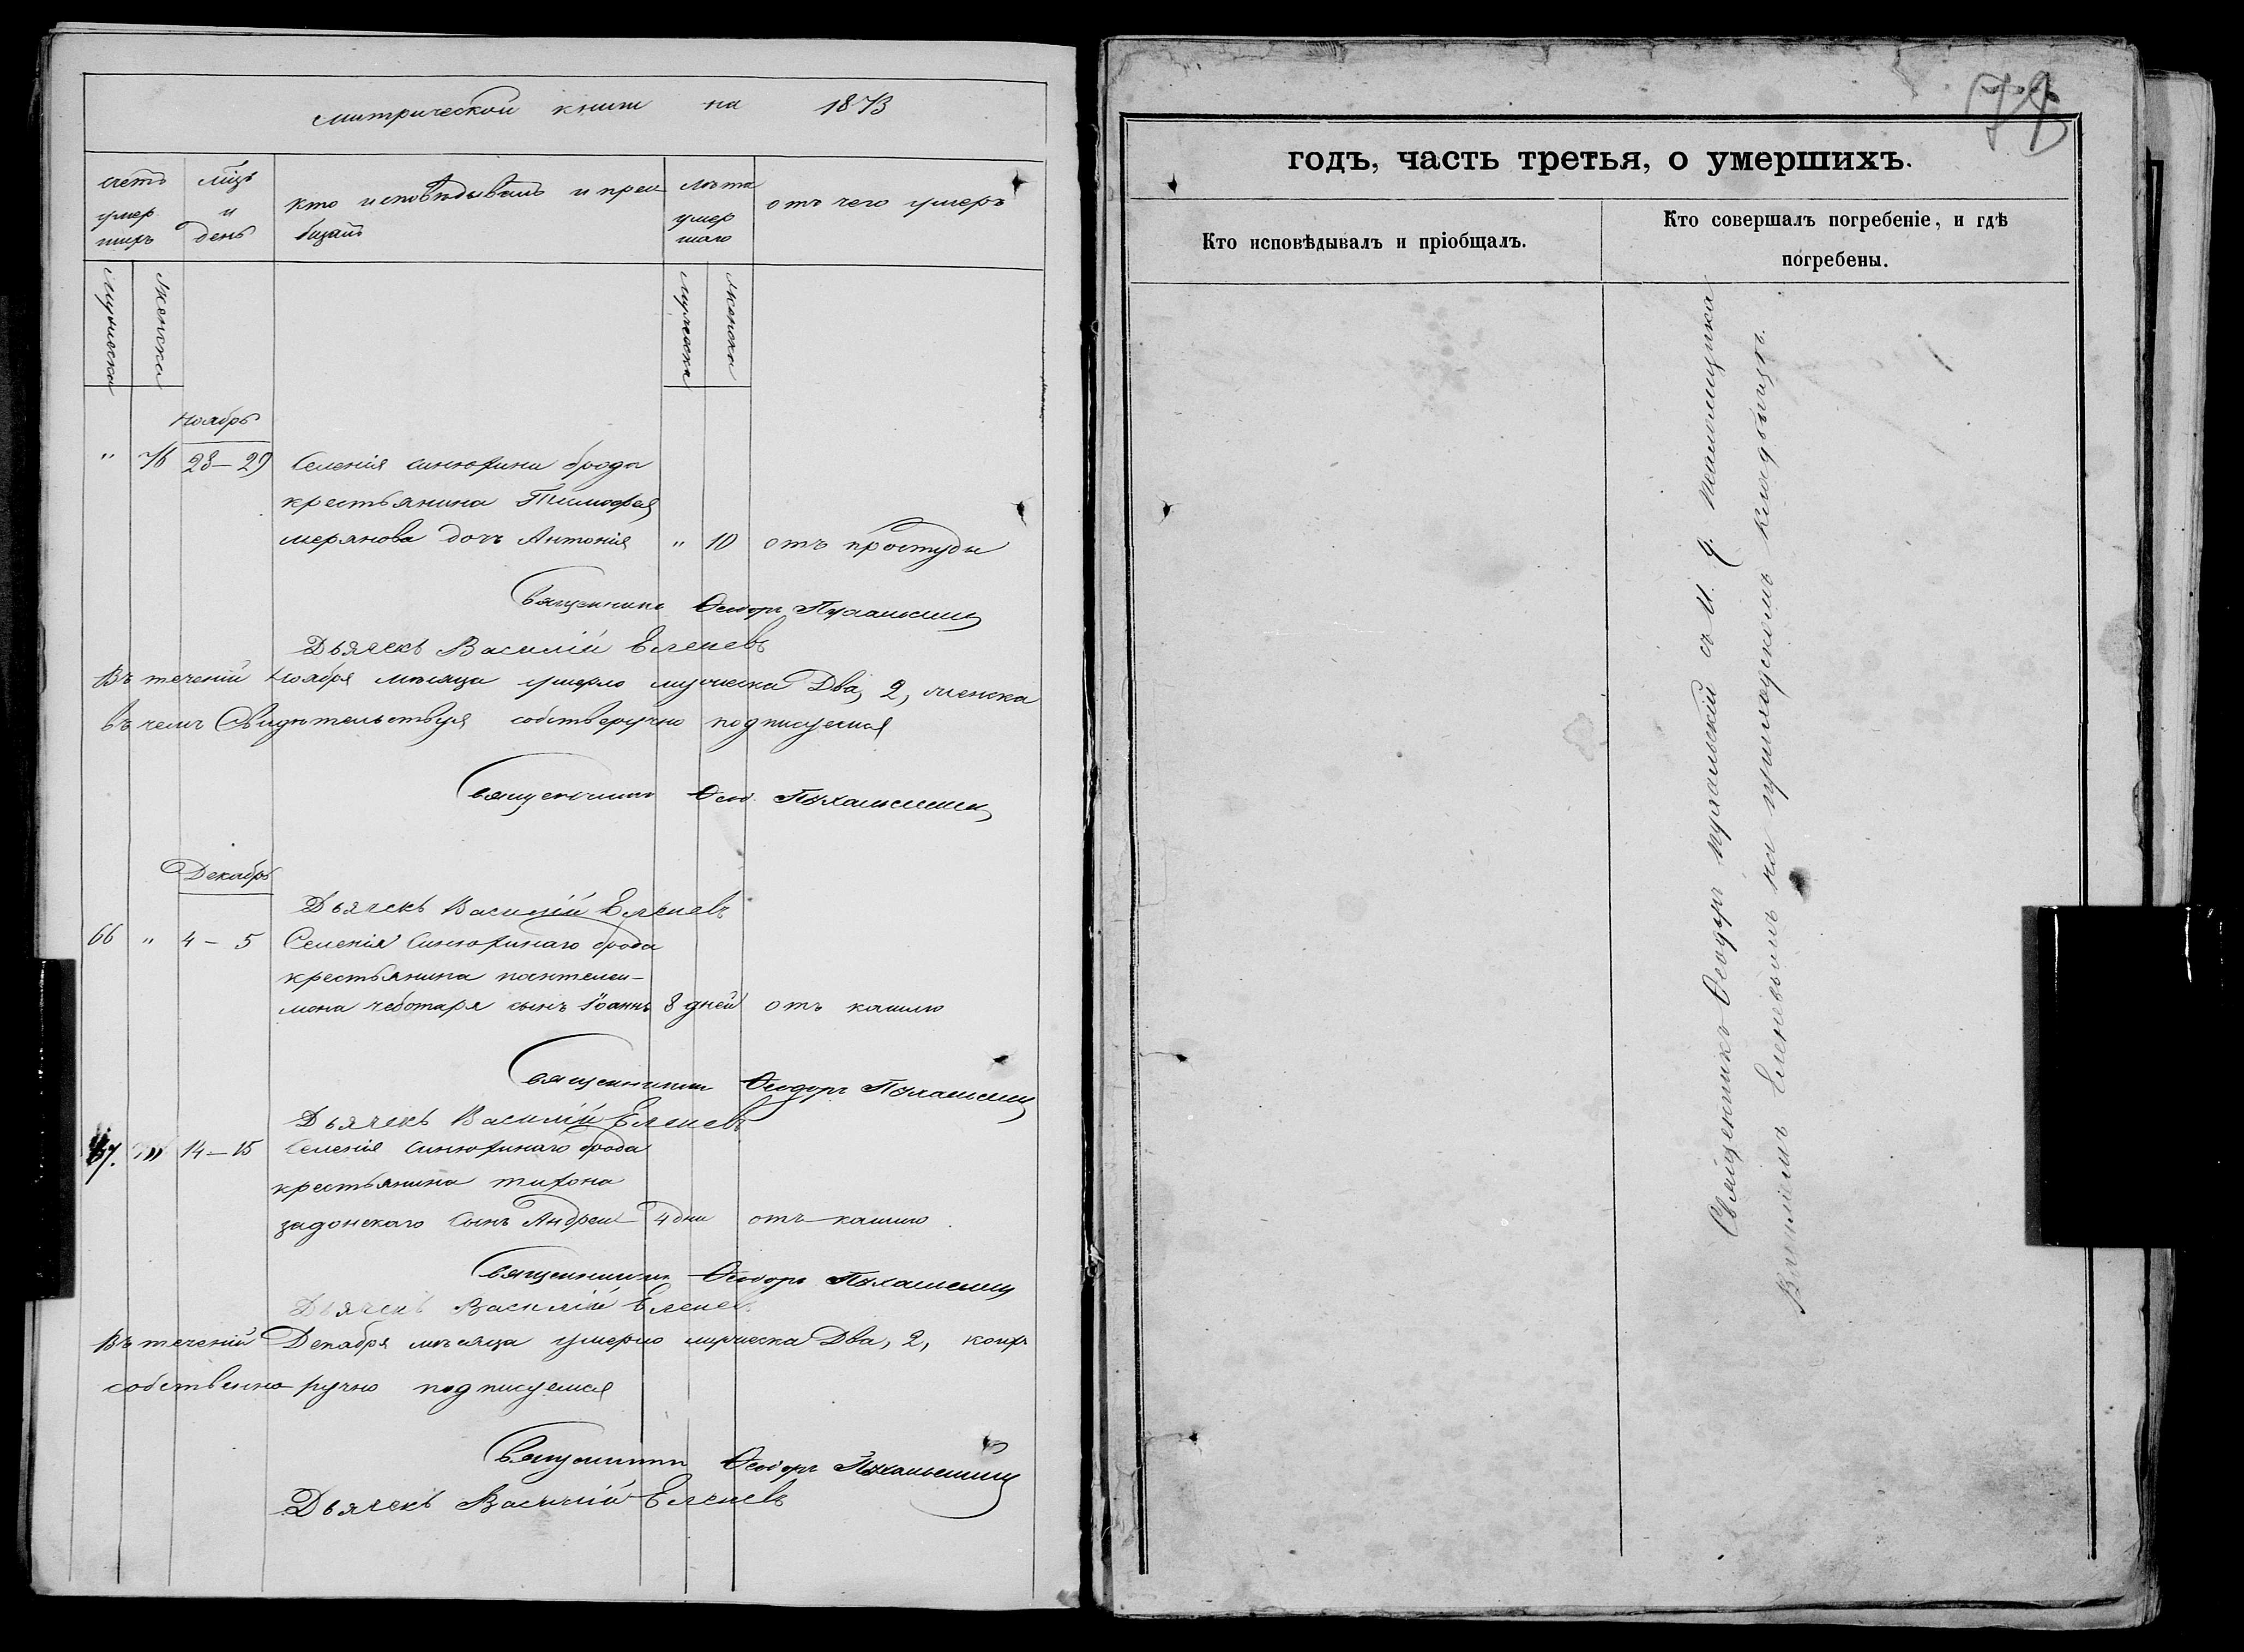 метрической книги на 1873
счетъ умер шихъ
мцъ и день
кто исповѣдывалъ и прі
бщалъ
лѣта умер шаго
отъ чего умеръ
Мужеска
Женска
мужеска
женска
Ноябрь
" 76 28–29 Селенія синюхина брода
крестьянина Тимофея
мерянова дочь Антонія " 10 отъ простуды
Священникъ Ѳеодоръ Пухальскій
Дьячекъ Василій Еленевъ
Въ теченіи Ноября мѣсяца умерло мужеска Два, 2, женска
въ чемъ Свидѣтельствуя собстверучно подписуемся
Священникъ Ѳеод. Пухальскій
Декабрь
Дьячекъ Василій Еленевъ
66 " 4 – 5 Селенія Синюхинаго брода
крестьянина пантелеи-
мона чеботаря сынъ Іоаннъ 8 дней отъ кашлю
Священникъ Ѳеодоръ Пухальскій
Дьячекъ Василій Еленевъ
67. " 14–15 Селенія Синюхинаго брода
крестьянина тихона
задонскаго Сынъ Андреи 4 дни отъ кашлю
Священникъ Ѳеодоръ Пухальскій
Дьячекъ Василій Еленевъ
Въ теченіи Декабря мѣсяца умерло мужеска Два, 2,
собственно ручно подписуемся
Священникъ Ѳеодоръ Пухальскій
Дьячекъ Василій Еленевъ
годъ, часть третья, о умершихъ.
Кто исповѣдывалъ и пріобщалъ.
Кто совершалъ погребеніе, и гдѣ
погребены.
Священникъ Ѳеодоръ пухальскій съ И. д. псаломщика
Василіемъ Еленевымъ на приходскомъ кладбищѣ.